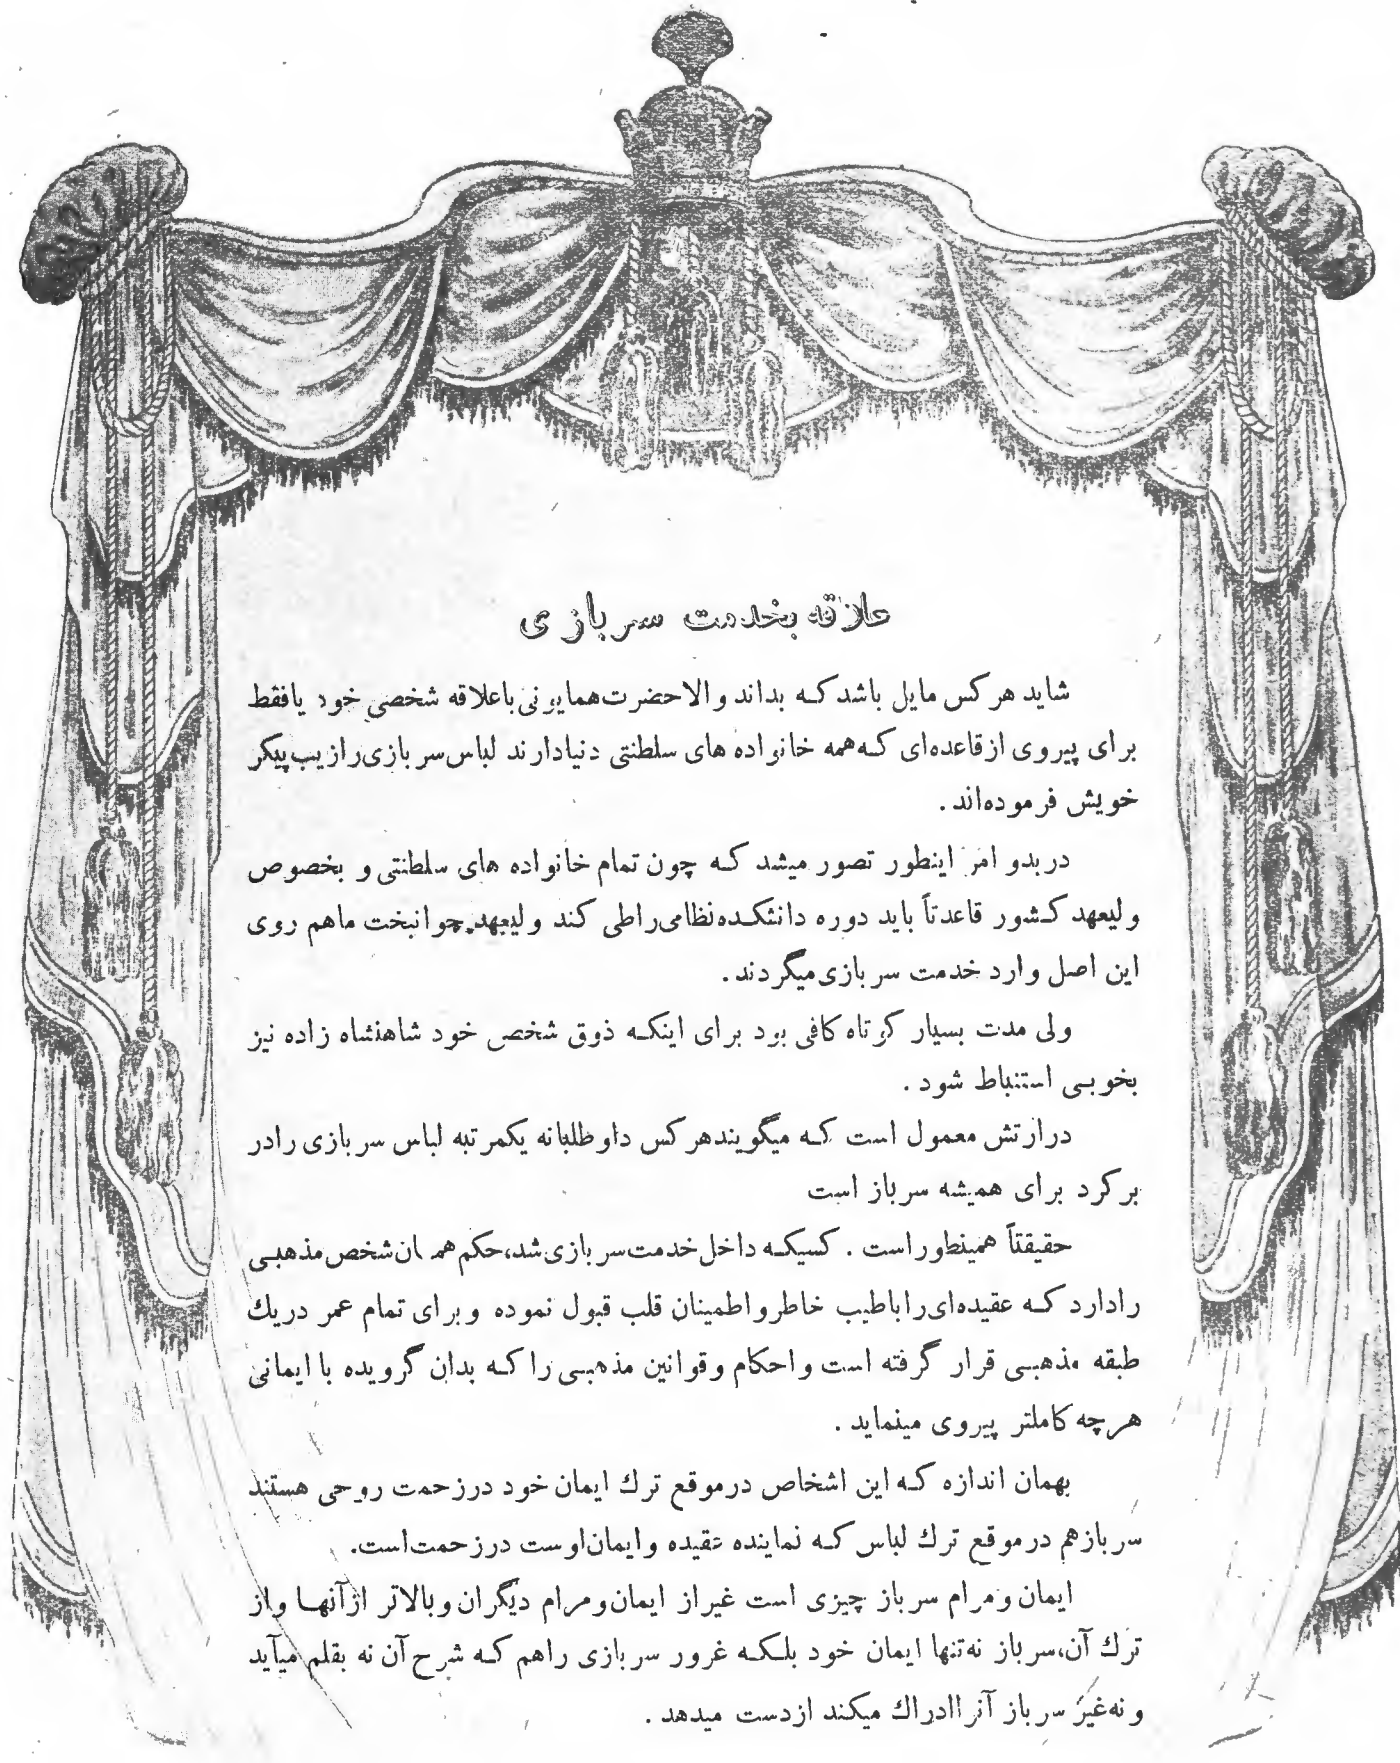 علاقه بخدمت سربازی
شاید هر کس مایل باشد که بداند والاحضرت همایونی باعلاقه شخصی خود یافقط
برای پیروی از قاعده‌ای که همه خانواده های سلطنتی دنیادارند لباس سربازی را زیب پیکر
خویش فرموده‌اند .
در بدو امر اینطور تصور میشد که چون تمام خانواده های سلطنتی و بخصوص
ولیعهد کشور قاعدتاً باید دوره دانشکده نظامی راطی کند ولیعهد جوانبخت ماهم روی
این اصل وارد خدمت سربازی میگردند .
ولی مدت بسیار کوتاه کافی بود برای اینکه ذوق شخصی خود شاهنشاه زاده نیز
بخوبی استنباط شود .
درارتش معمول است که میگویند هر کس داوطلبانه یکمرتبه لباس سربازی رادر
بر کرد برای همیشه سرباز است
حقیقتاً همینطور است . کسیکه داخل خدمت سربازی شد، حکم همان شخص مذهبی
رادارد که عقیده‌ای را باطیب خاطر و اطمینان قلب قبول نموده و برای تمام عمر دریك
طبقه مذهبی قرار گرفته است و احکام و قوانین مذهبی را که بدان گرویده با ایمانی
هرچه کاملتر پیروی مینماید .
بهمان اندازه که این اشخاص درموقع ترك ایمان خود درزحمت روحی هستند
سربازهم درموقع ترك لباس که نماینده عقیده و ایمان اوست درزحمت است.
ایمان و مرام سرباز چیزی است غیراز ایمان و مرام دیگران و بالاتر ازآنها و از
ترك آن، سرباز نه تنها ایمان خود بلکه غرور سربازی راهم که شرح آن نه بقلم میآید
و نه غیر سرباز آنرا ادراك میکند ازدست میدهد .